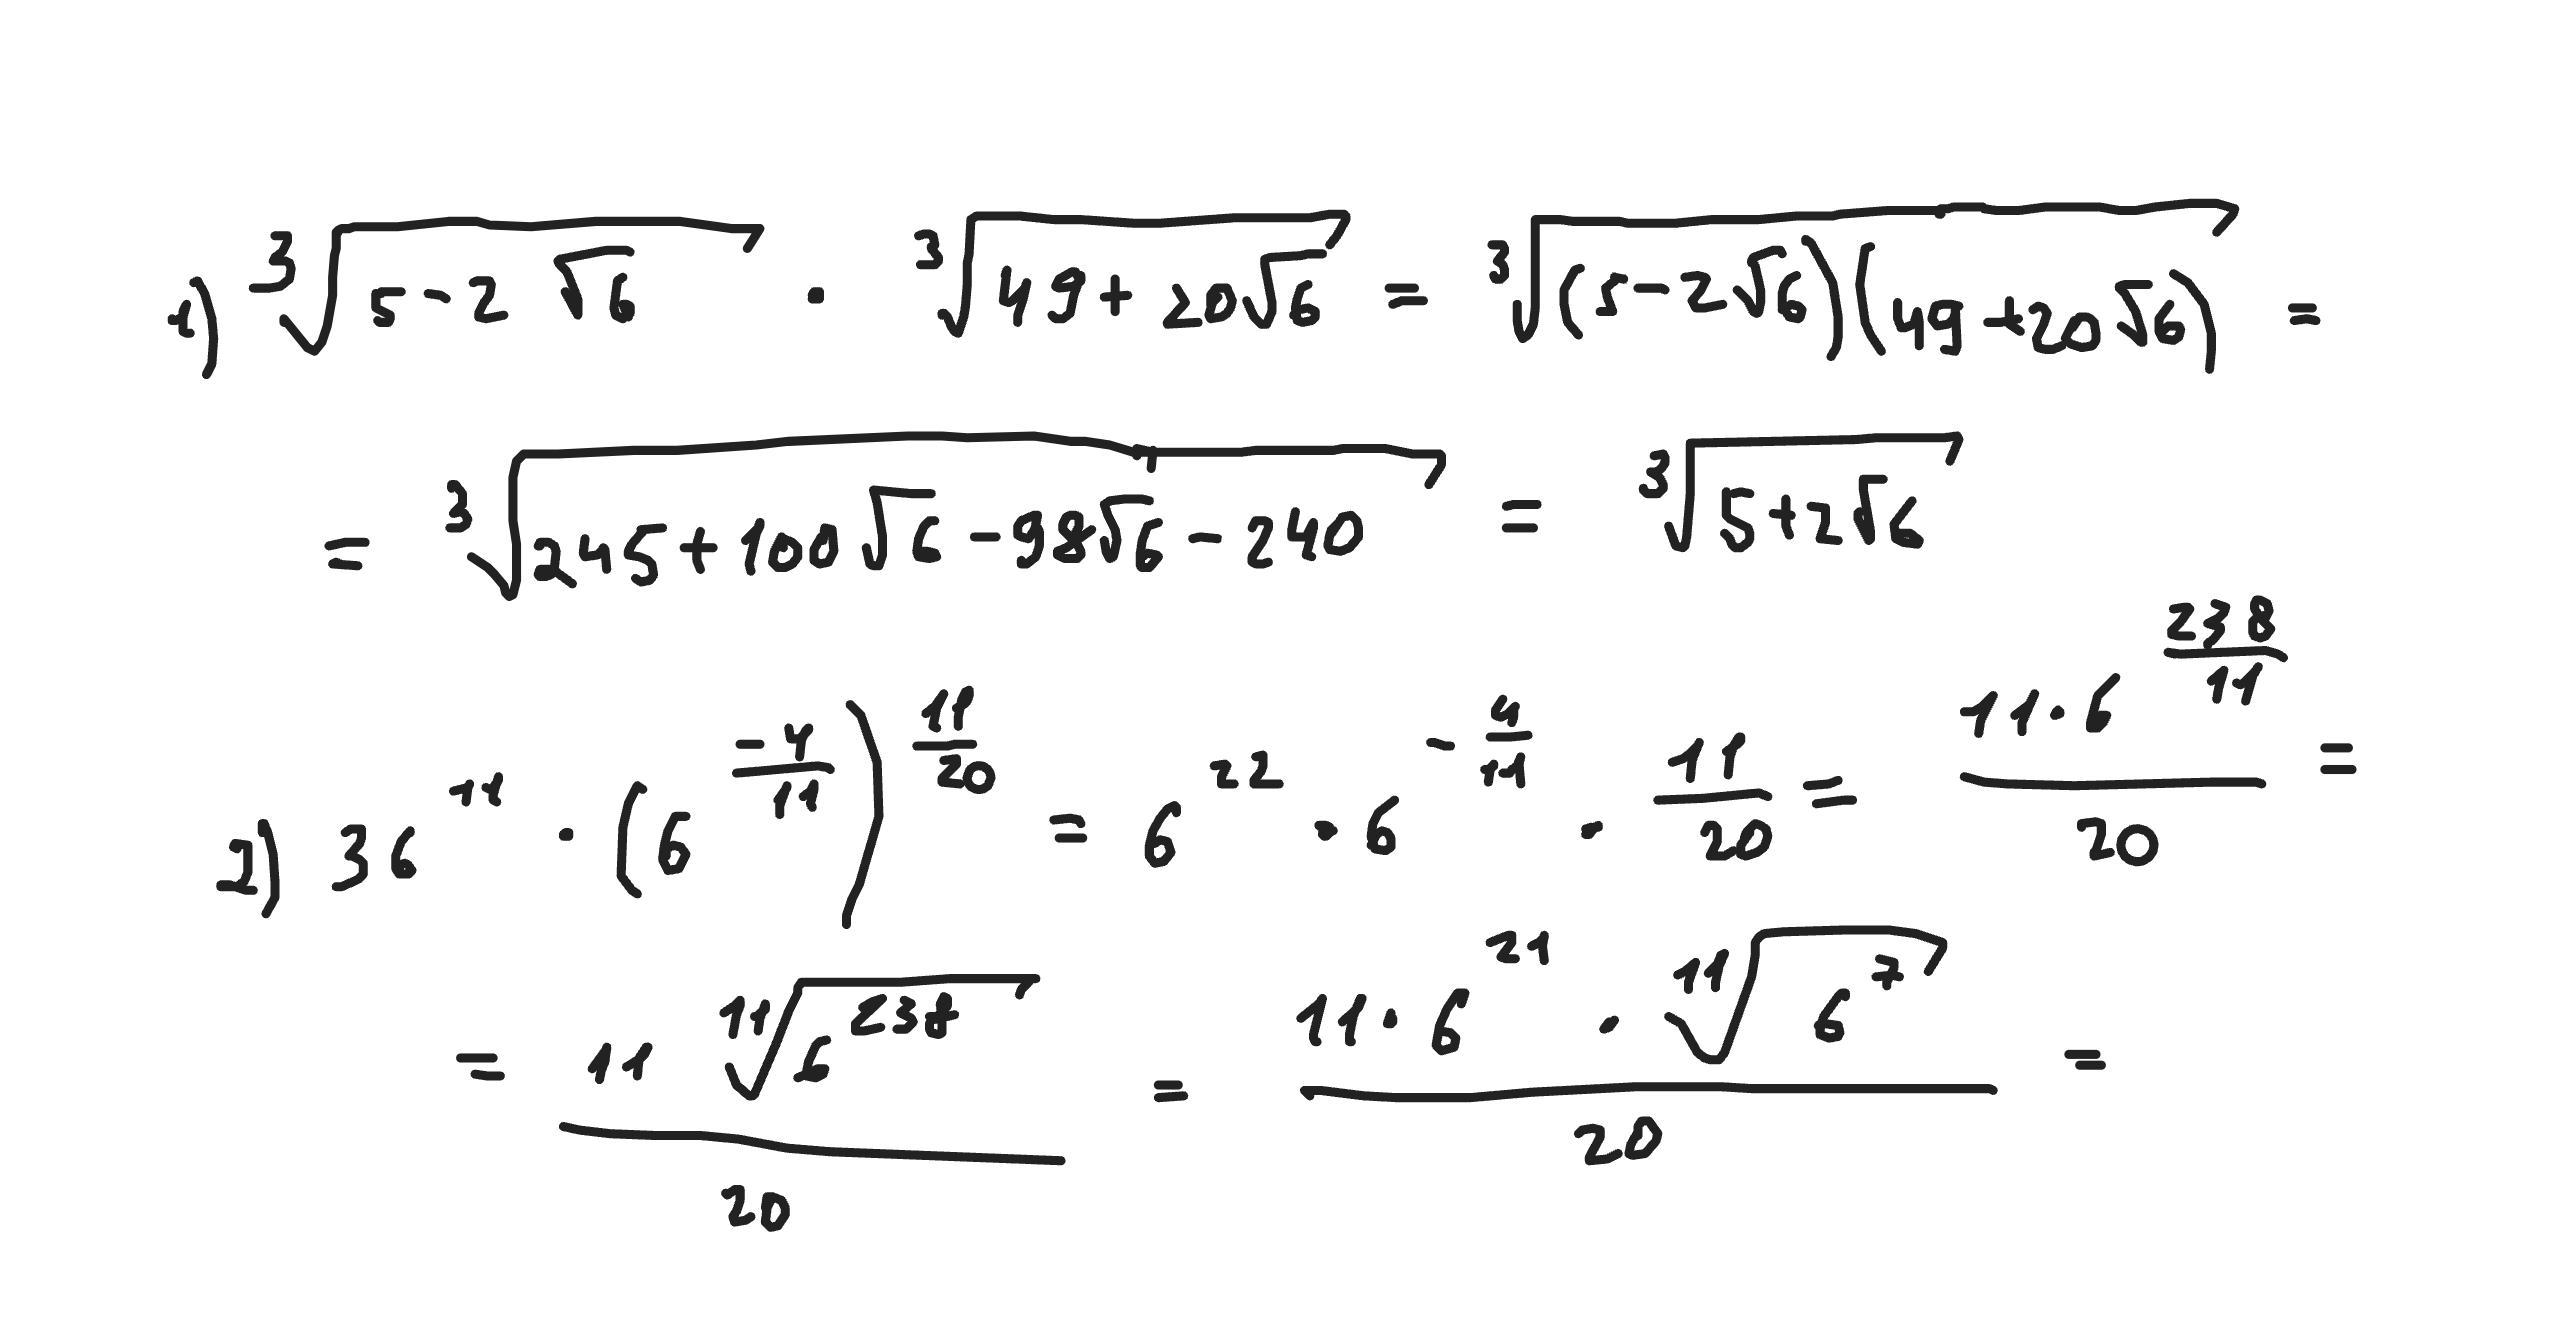 1) ∛(5-2√6) · ∛(49+20√6) = ∛((5-2√6)(49+20√6)) =
= ∛(245+100√6-98√6-240) = ∛(5+2√6)
2) 36^11 · (6^(-4/11))^(11/20) = 6^22 · 6^(-4/11) · 11/20 = (11·6^(238/11))/20 =
= (11 ¹¹√(6^238))/20 = (11·6^21 · ¹¹√(6^7))/20 =